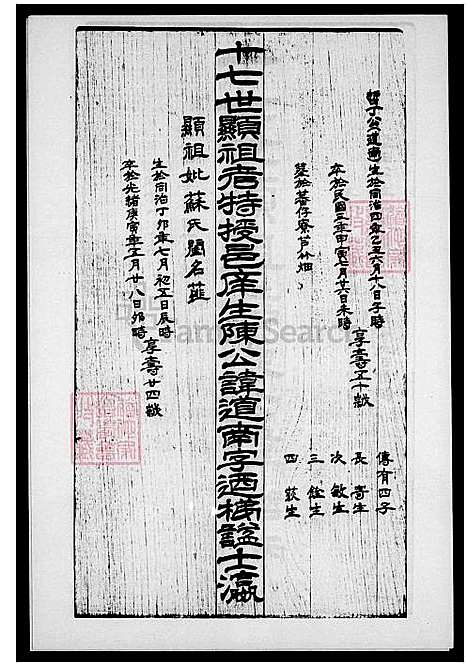 哲子公道南生於同治四年乙丑六月十八日子時
卒於民國三年甲寅七月廿六日未時
享壽五十歲
葬於蕃仔寮芦竹畑
傳有四子
長 寄生
次 敏生
三 銓生
四 荻生
十七世顯祖考特授邑庠生陳公諱道南字迺梯謚士瀛
顯祖妣蘇氏閨名蓮
生於同治丁卯年七月初五日辰時
卒於光緒庚寅年五月廿八日卯時
享壽廿四歲
FamilySearch